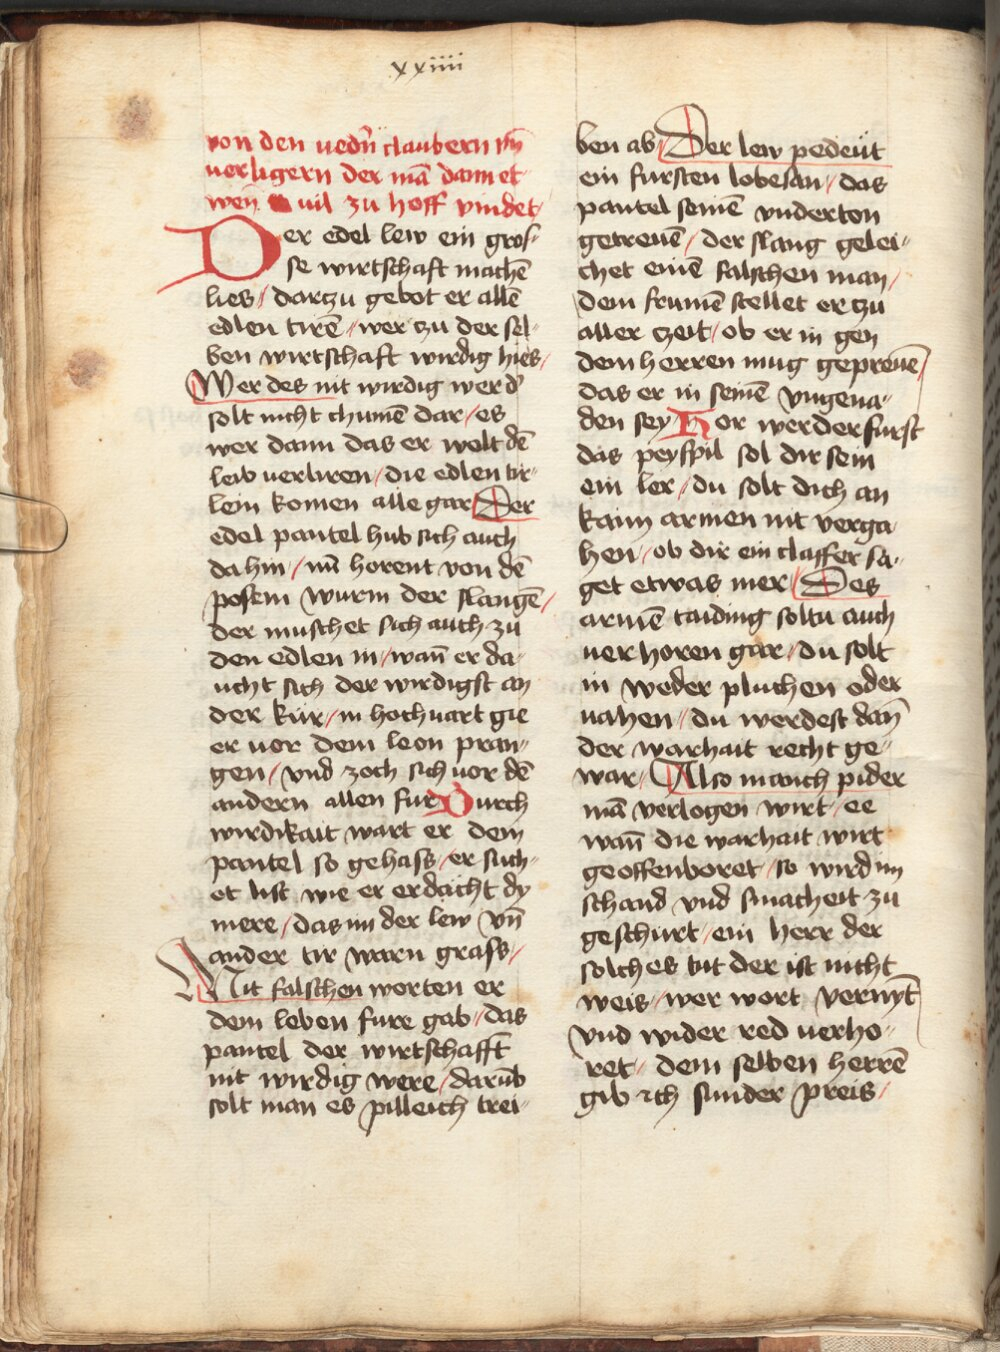 xxiiii
von den uedn̄ claubern vn̄
verligern der mā dann et
wen̄ uil zu hoff vindet/
Der edel lew ein gros-
se wirtschaft machē
lies/ darzu gebot er allē
edlen tirē/ wer zu der sel-
ben wirtschaft wirdig hies/
Wer des nit wirdig werd
solt nicht chumē dar/ es
wer dann das er wolt dē
leib verliren/ die edlen tir-
lein komen alle gar Der
edel pantel hub sich auch
dahin/ nū horent von dē
posem wurm der slangē/
der muschet sich auch zu
den edlen in/ wan̄ er da-
ucht sich der wirdigst an
der kür/ in hochuart gie
er vor dem leon pran-
gen/ vnd zoch sich vor dē
andern allen fur Durch
wirdikait wart er dem
pantel so gehass/ er such-
et list wie er erdacht dy
mere/ das im der lew vn̄
ander tir warn grass/
Mit falschen worten er
dem leben fure gab/ das
pantel der wirtschafft
nit wirdig were/ darūb
solt man es pilleich trei-
ben ab/ Der lew pedeüt
ein fursten lobesan/ das
pantel seinē vnderton
getreuē/ der slang gelei-
chet einē falschen man/
dem frumē stellet er zu
aller zeit/ ob er in gen
dem herren mug gepreuē/
das er in seinē vngena-
den sey Her werder furst
das peyspil sol dir sein
ein ler/ du solt dich an
kaim armen nit verga-
hen/ ob dir ein claffer sa-
get etwas mer/ Des
armē taiding soltu auch
uerhoren gar/ du solt
in weder pluchen oder
uahen/ du werdest dan̄
der warhait recht ge-
war/ Also manch pider
mā verlogen wirt/ ee
wan̄ die warhait wirt
geoffenboret/ so wird im
schand vnd smacheit zu
geschurt/ ein herr der
solches tut der ist nicht
weis/ wer wort vernyt
vnd wider red uerho-
ret/ dem selben herrē
gib ich sunder preis/